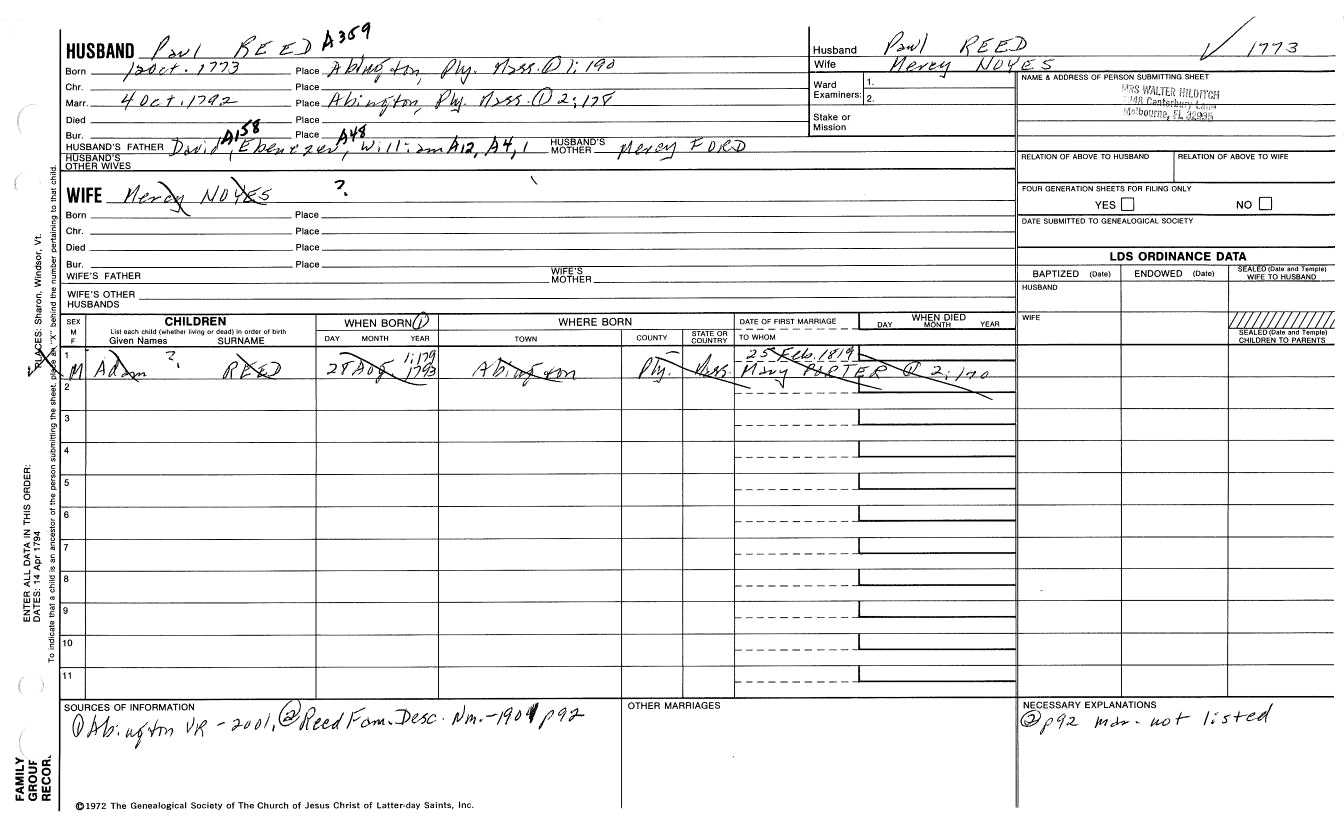 HUSBAND Paul REED A359
Born 12 Oct. 1773 Place Abington, Ply. Mass. ① 1; 190
Chr. Place
Marr. 4 Oct. 1792 Place Abington, Ply. Mass. ① 2; 178
Died Place
Bur. Place
HUSBAND'S FATHER David A158, Ebenezer A48, William A12, A4, 1 HUSBAND'S MOTHER Mercy FORD
HUSBAND'S OTHER WIVES
Husband Paul REED 1 1773
Wife Mercy NOYES
Ward Examiners: 1.
2.
Stake or Mission
NAME & ADDRESS OF PERSON SUBMITTING SHEET
MRS WALTER HILDITCH
Canterbury Lane
Melbourne, FL 32935
RELATION OF ABOVE TO HUSBAND RELATION OF ABOVE TO WIFE
FOUR GENERATION SHEETS FOR FILING ONLY
YES NO
DATE SUBMITTED TO GENEALOGICAL SOCIETY
WIFE Mercy NOYES ?
Born Place
Chr. Place
Died Place
Bur. Place
WIFE'S FATHER WIFE'S MOTHER
WIFE'S OTHER HUSBANDS
LDS ORDINANCE DATA
BAPTIZED (Date) ENDOWED (Date) SEALED (Date and Temple) WIFE TO HUSBAND
HUSBAND
WIFE
SEALED (Date and Temple) CHILDREN TO PARENTS
SEX M F CHILDREN List each child (whether living or dead) in order of birth Given Names SURNAME
WHEN BORN ① DAY MONTH YEAR
WHERE BORN TOWN COUNTY STATE OR COUNTRY
DATE OF FIRST MARRIAGE TO WHOM
WHEN DIED DAY MONTH YEAR
1 M Adam ? REED 28 Aug. 1;179 1793 Abington Ply. Mass. 25 Feb. 1819
Mary PORTER ① 2; 170
2
3
4
5
6
7
8
9
10
11
SOURCES OF INFORMATION
① Abington VR - 2001, ② Reed Fam. Desc. Wm. - 1901 p92
OTHER MARRIAGES
NECESSARY EXPLANATIONS
② p92 mar. not listed
©1972 The Genealogical Society of The Church of Jesus Christ of Latter-day Saints, Inc.
FAMILY GROUP RECOR.
ENTER ALL DATA IN THIS ORDER:
DATES: 14 Apr 1794
PLACES: Sharon, Windsor, Vt.
To indicate that a child is an ancestor of the person submitting the sheet, please an "X" behind the number pertaining to that child.